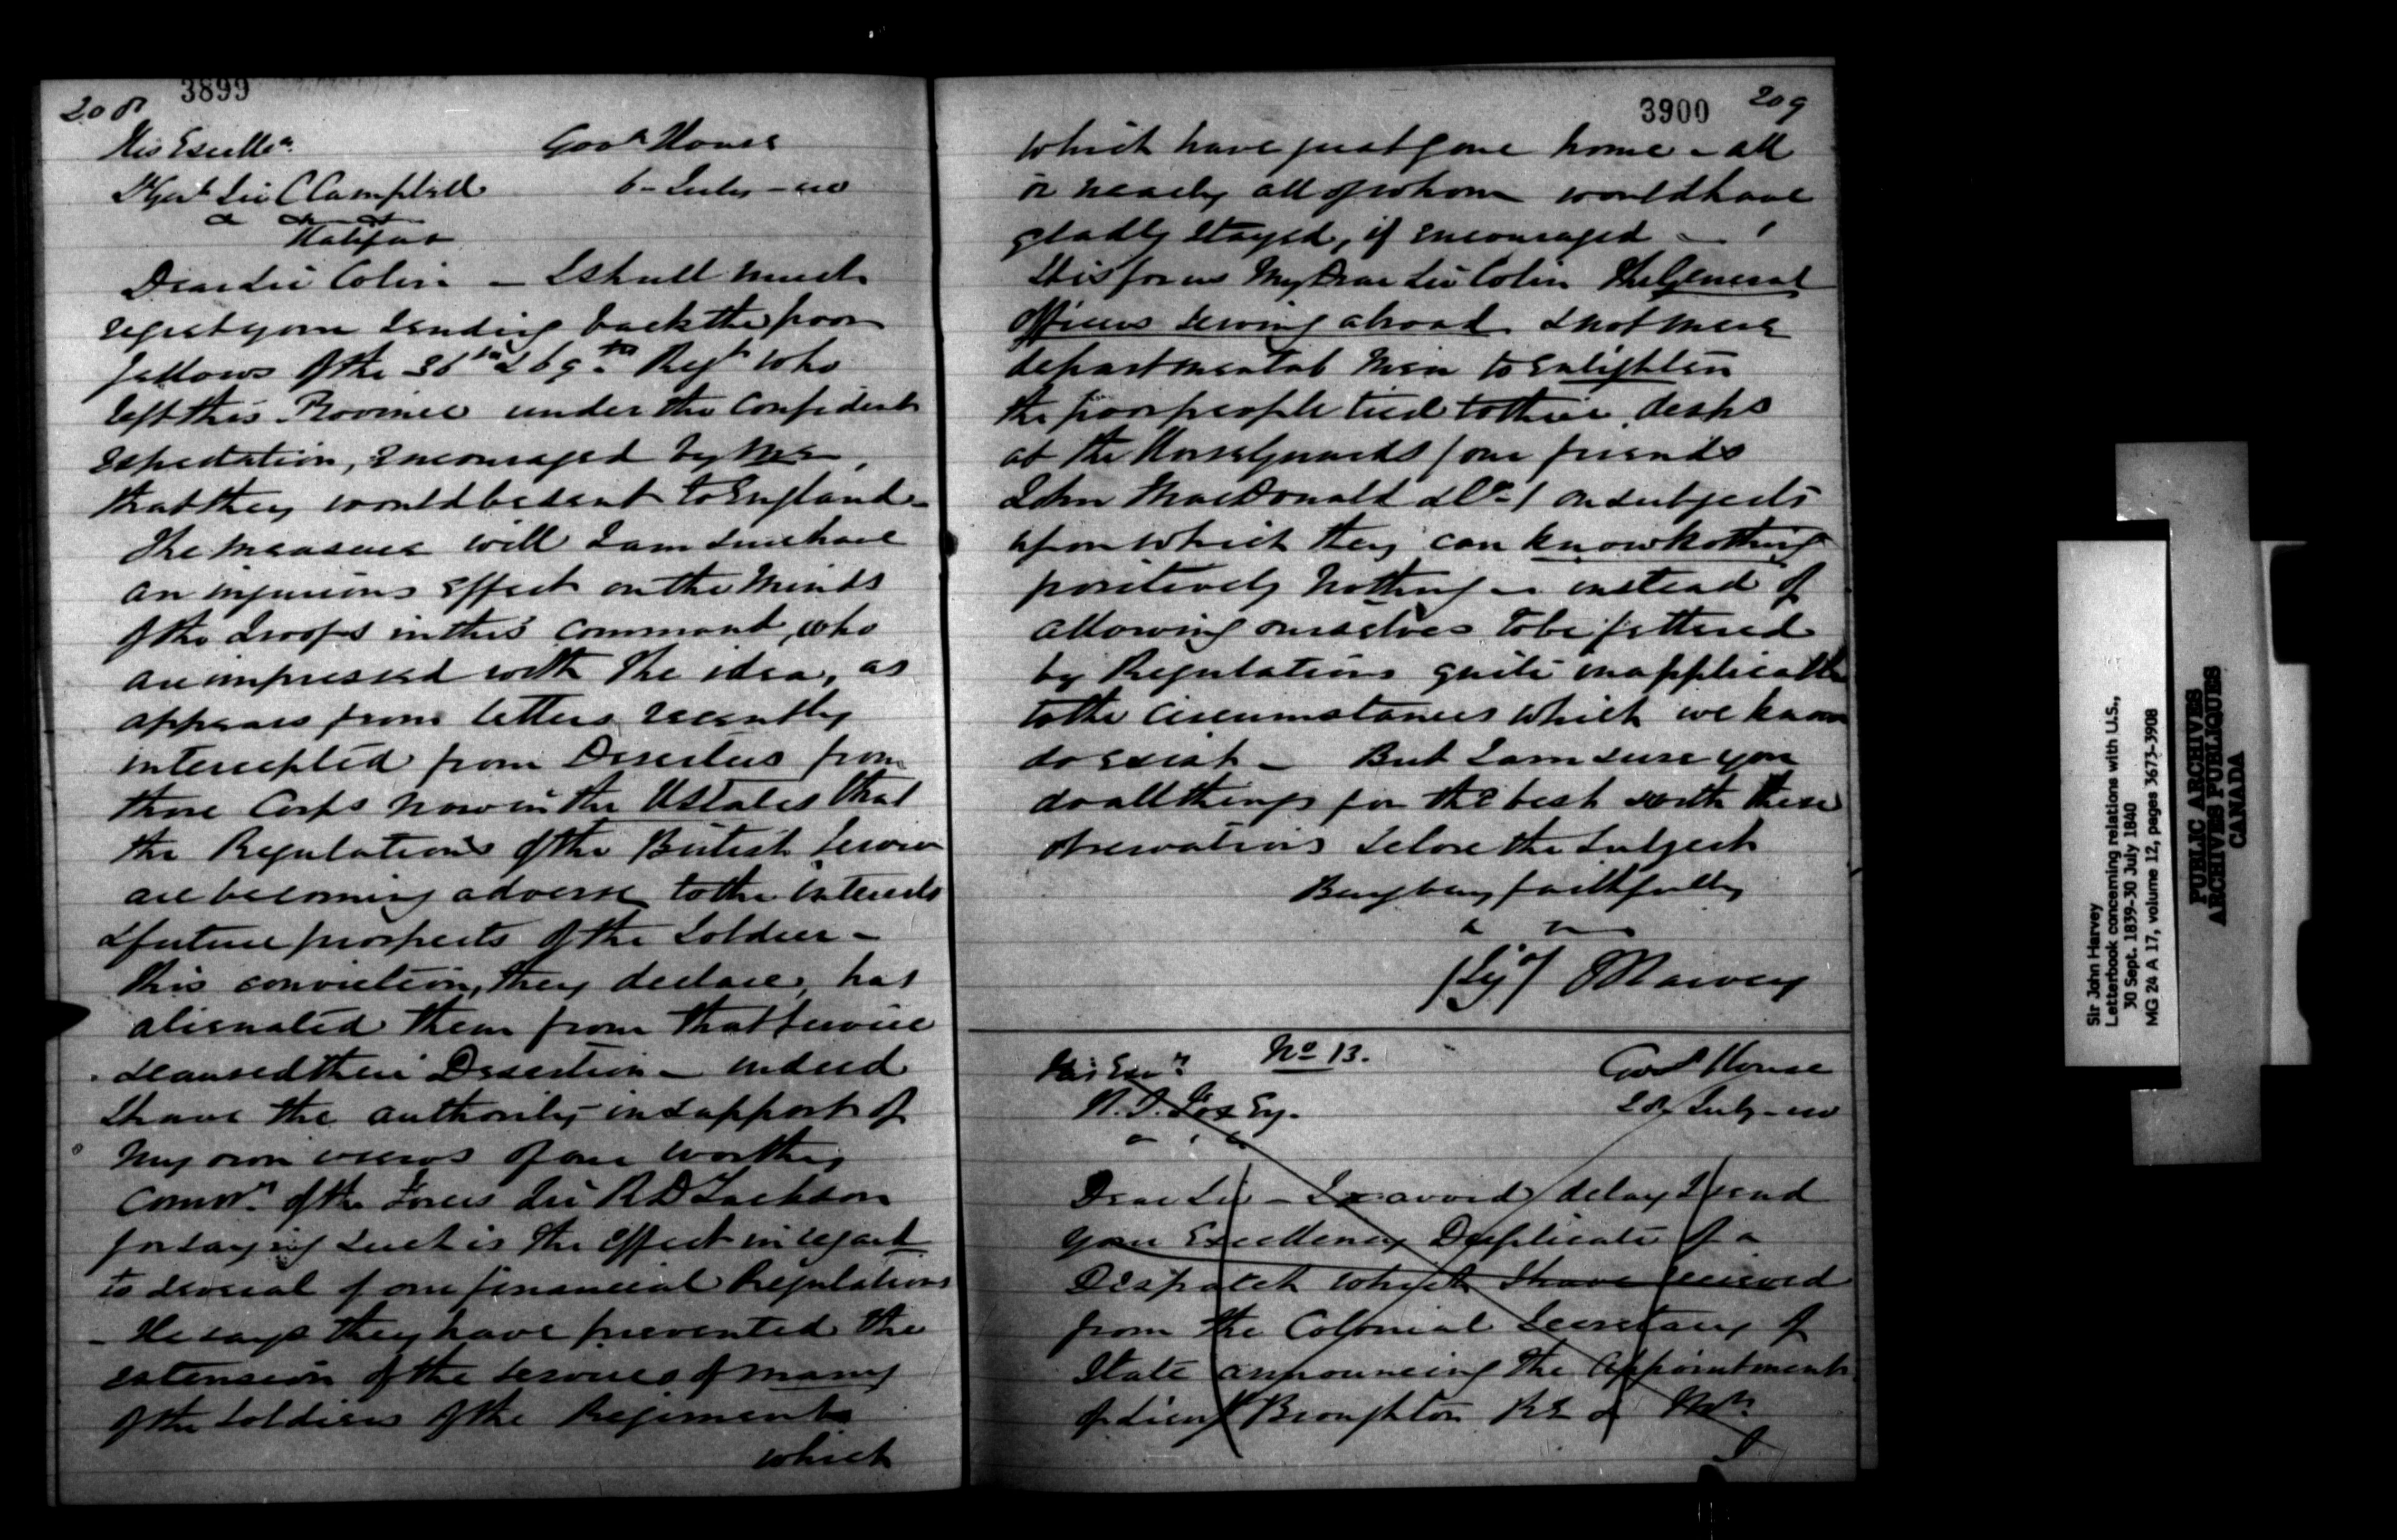 208 3899
His Excelln. Govt House
M Genl Sir C Campbell 6 - July - 40
Halifax
Dear Sir Colin - I shall much
regret your sending back the poor
fellows of the 36th & 69th Regt who
left this Province under the confident
expectation, encouraged by me,
that they would be sent to England -
The measure will I am sure have
an injurious effect on the minds
of the Troops in this command, who
are impressed with the idea, as
appears from letters recently
intercepted from Deserters from
those Corps now in the UStates that
the Regulations of the British Service
are becoming adverse to the interests
& future prospects of the Soldier -
this conviction, they declare, has
alienated them from that service
& caused their Desertion - indeed
I have the authority in support of
my own views of our worthy
Commr. of the Forces Sir R D Jackson
for saying such is the effect in regard
to several of our financial Regulations
- He says they have prevented the
extension of the services of many
of the Soldiers of the Regiments
which
3900 209
which have just gone home - all
or nearly all of whom would have
gladly stayed, if encouraged -
It is for us My Dear Sir Colin The General
Officers serving abroad & not mere
departmental men to enlighten
the poor people tied to their desks
at the Horse Guards / our friends
John MacDonald & Co / on subjects
upon which they can know nothing
positively nothing - instead of
allowing ourselves to be fettered
by Regulations quite inapplicable
to the circumstances which we know
do exist - But I am sure you
do all things for the best with these
observations I close the subject
faithfully
/Sigd/ J Harvey
No 13.
His Excy. Govt House
H. S. Fox Esq. 28 July - 40
Dear Sir - To avoid delay I send
your Excellency Duplicate of a
Despatch which I have received
from the Colonial Secretary of
State announcing the appointment
of Lieut Broughton RE & Mr.
Sir John Harvey
Letterbook concerning relations with U.S.,
30 Sept. 1839-30 July 1840
MG 24 A 17, volume 12, pages 3673-3908
PUBLIC ARCHIVES
ARCHIVES PUBLIQUES
CANADA